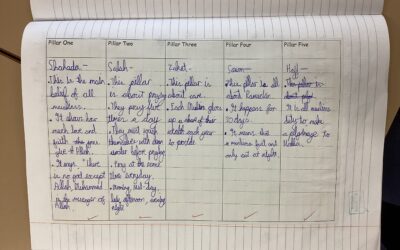 Pillar One
Shahada -
This is the main
belief of all
muslims.
• It shows how
much love and
faith they give
to Allah.
• It says, "There
is no god except
Allah, Muhammad
is the messenger of
Allah.
Pillar Two
Salah -
• This pillar
is about praying
• They pray five
times a day
• They must wash
themselves with clean
water before praying
• Pray at the same
time everyday.
• Morning, mid-day,
late afternoon, evening
night
Pillar Three
Zakat -
• This pillar is
about care.
• Each Muslim gives
up a share of their
wealth each year
to provide
Pillar Four
Sawm -
• This pillar is all
about Ramadan
• It happens for
30 days.
• It means that
muslims fast and
only eat at night.
Pillar Five
Hajj -
• This pillar is
• It is all muslims
duty to make
a pilgrimage to